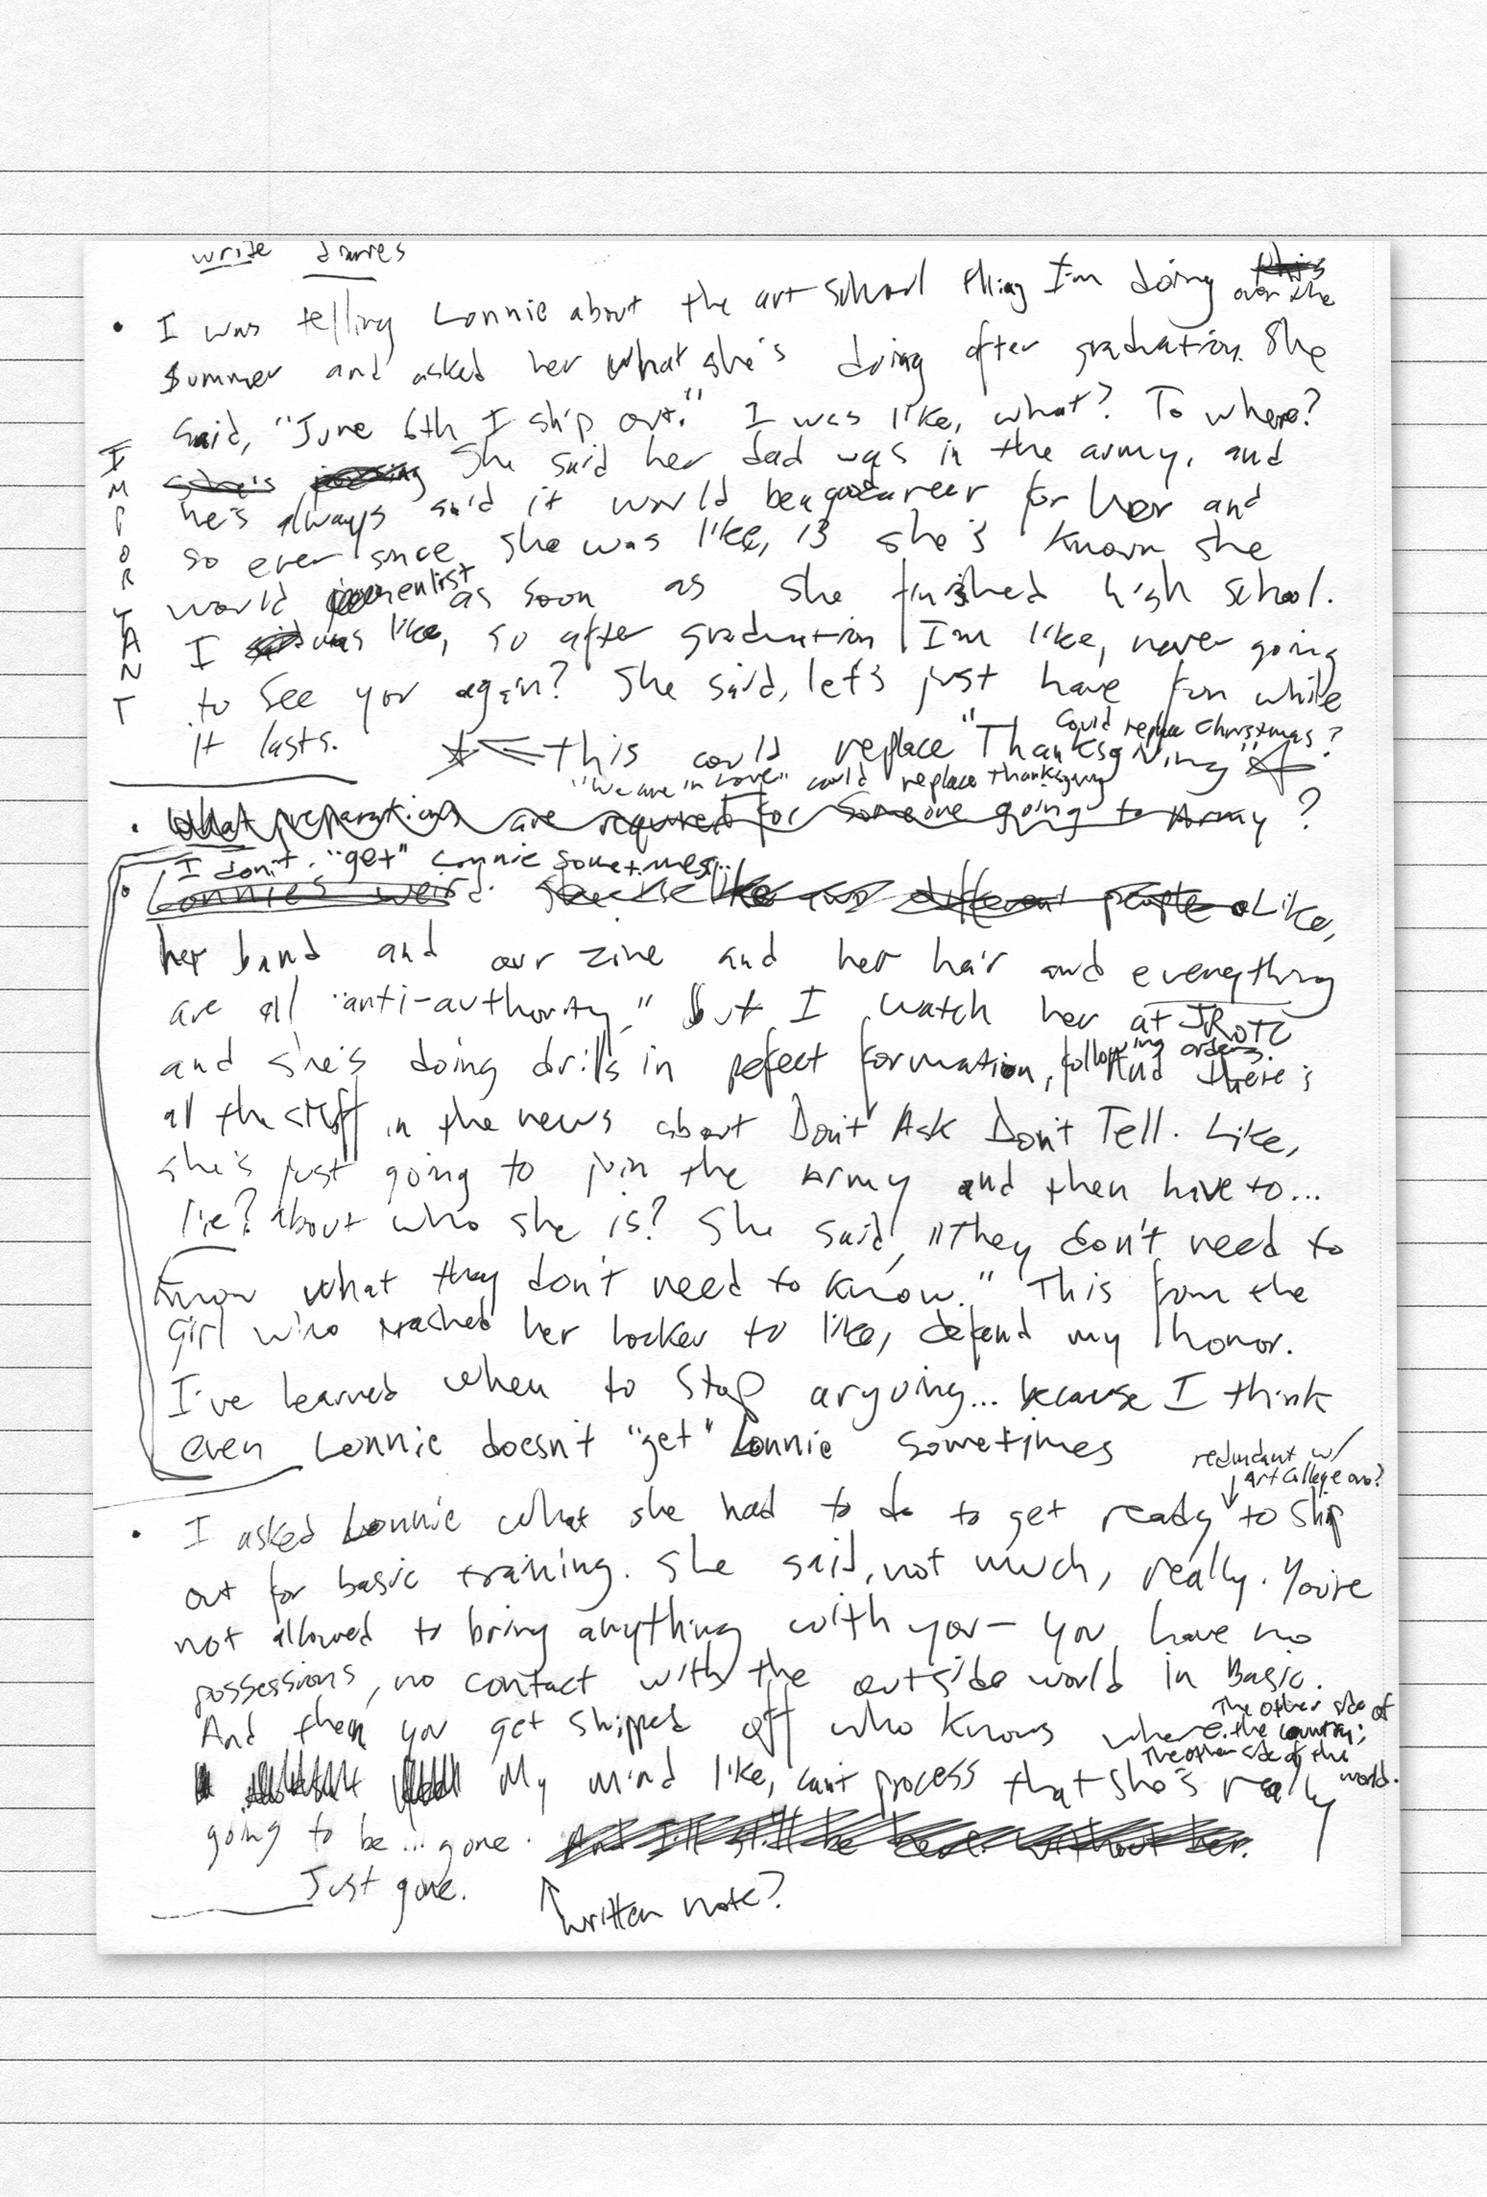 write diaries
• I was telling Lonnie about the art school thing I'm doing this over the
summer and asked her what she's doing after graduation. She
said, "June 6th I ship out." I was like, what? To where?
she's She said her dad was in the army, and
he's always said it would be a good career for her and
so ever since she was like, 13 she's known she
would enlist as soon as she finished high school.
I was like, so after graduation I'm like, never going
to see you again? She said, let's just have fun while
it lasts.
IMPORTANT
this could replace "Thanksgiving"
could replace Christmas?
"We are in Love" could replace Thanksgiving
• What preparations are required for someone going to Army?
I don't "get" Lonnie sometimes...
• Lonnie's weird. She's like two different people Like,
her band and our zine and her hair and everything
are all "anti-authority," but I watch her at JROTC
and she's doing drills in pefect formation, following orders. And there's
all the stuff in the news about Don't Ask Don't Tell. Like,
she's just going to join the Army and then have to...
lie? About who she is? She said, "They don't need to
know what they don't need to know." This from the
girl who trashed her locker to like, defend my honor.
I've learned when to stop arguing... because I think
even Lonnie doesn't "get" Lonnie sometimes
redundant w/
Art College one?
• I asked Lonnie what she had to do to get ready to ship
out for basic training. She said, not much, really. You're
not allowed to bring anything with you— you have no
possessions, no contact with the outside world in Basic.
And then you get shipped off who knows where. The other side of
the country; The other side of the world.
My mind like, can't process that she's really
going to be... gone. And I'll still be here. without her.
Just gone.
written note?